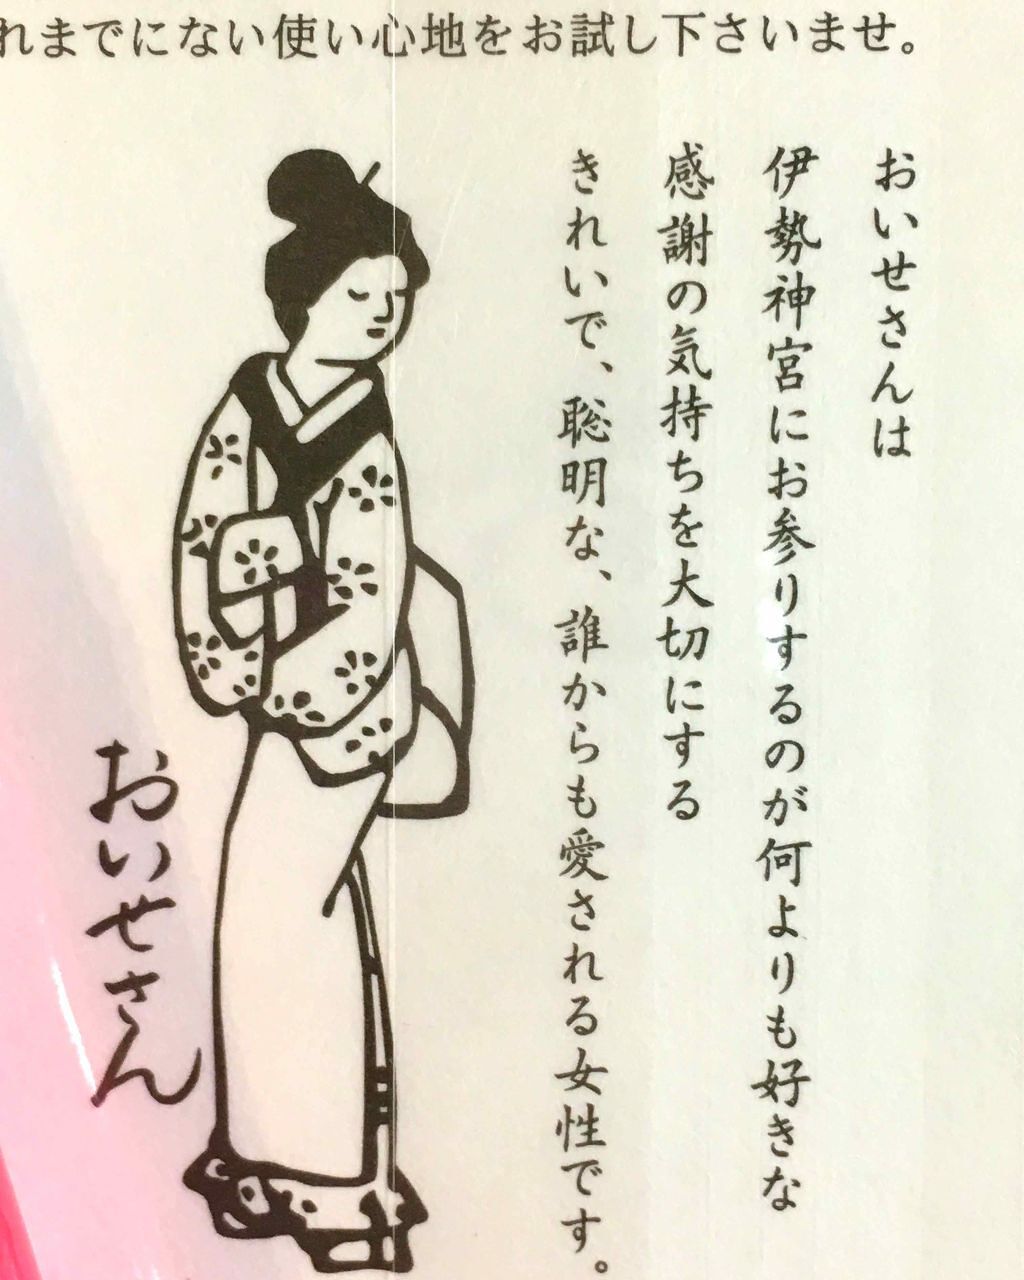 れまでにない使い心地をお試し下さいませ。
おいせさんは
伊勢神宮にお参りするのが何よりも好きな
感謝の気持ちを大切にする
きれいで、聡明な、誰からも愛される女性です。
おいせさん